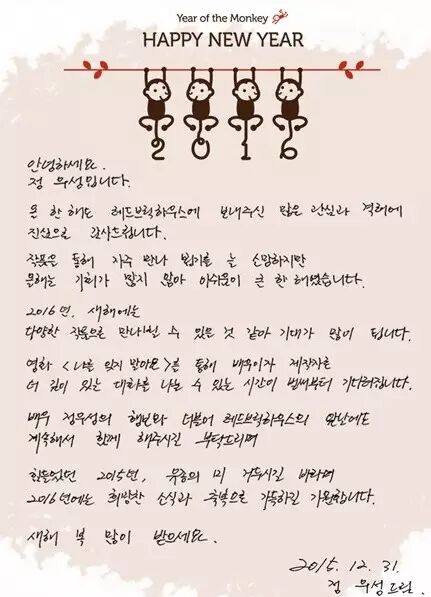 Year of the Monkey
HAPPY NEW YEAR
2016
안녕하세요.
정 우성입니다.
올 한해도 레드브릭하우스에 보내주신 많은 관심과 격려에
진심으로 감사드립니다.
작품을 통해 자주 만나 뵙기를 늘 소망하지만
올해는 기회가 많지 않아 아쉬움이 큰 한 해였습니다.
2016년, 새해에는
다양한 작품으로 만나뵐 수 있을 것 같아 기대가 많이 됩니다.
영화 <나를 잊지 말아요>를 통해 배우이자 제작자로
더 깊이 있는 대화를 나눌 수 있는 시간이 벌써부터 기다려집니다.
배우 정우성의 행보와 더불어 레드브릭하우스의 앞날에도
계속해서 함께 해주시길 부탁드리며
힘들었던 2015년, 유종의 미 거두시길 바라며
2016년에는 희망찬 소식과 축복으로 가득하길 기원합니다.
새해 복 많이 받으세요.
2015. 12. 31.
정 우성드림.